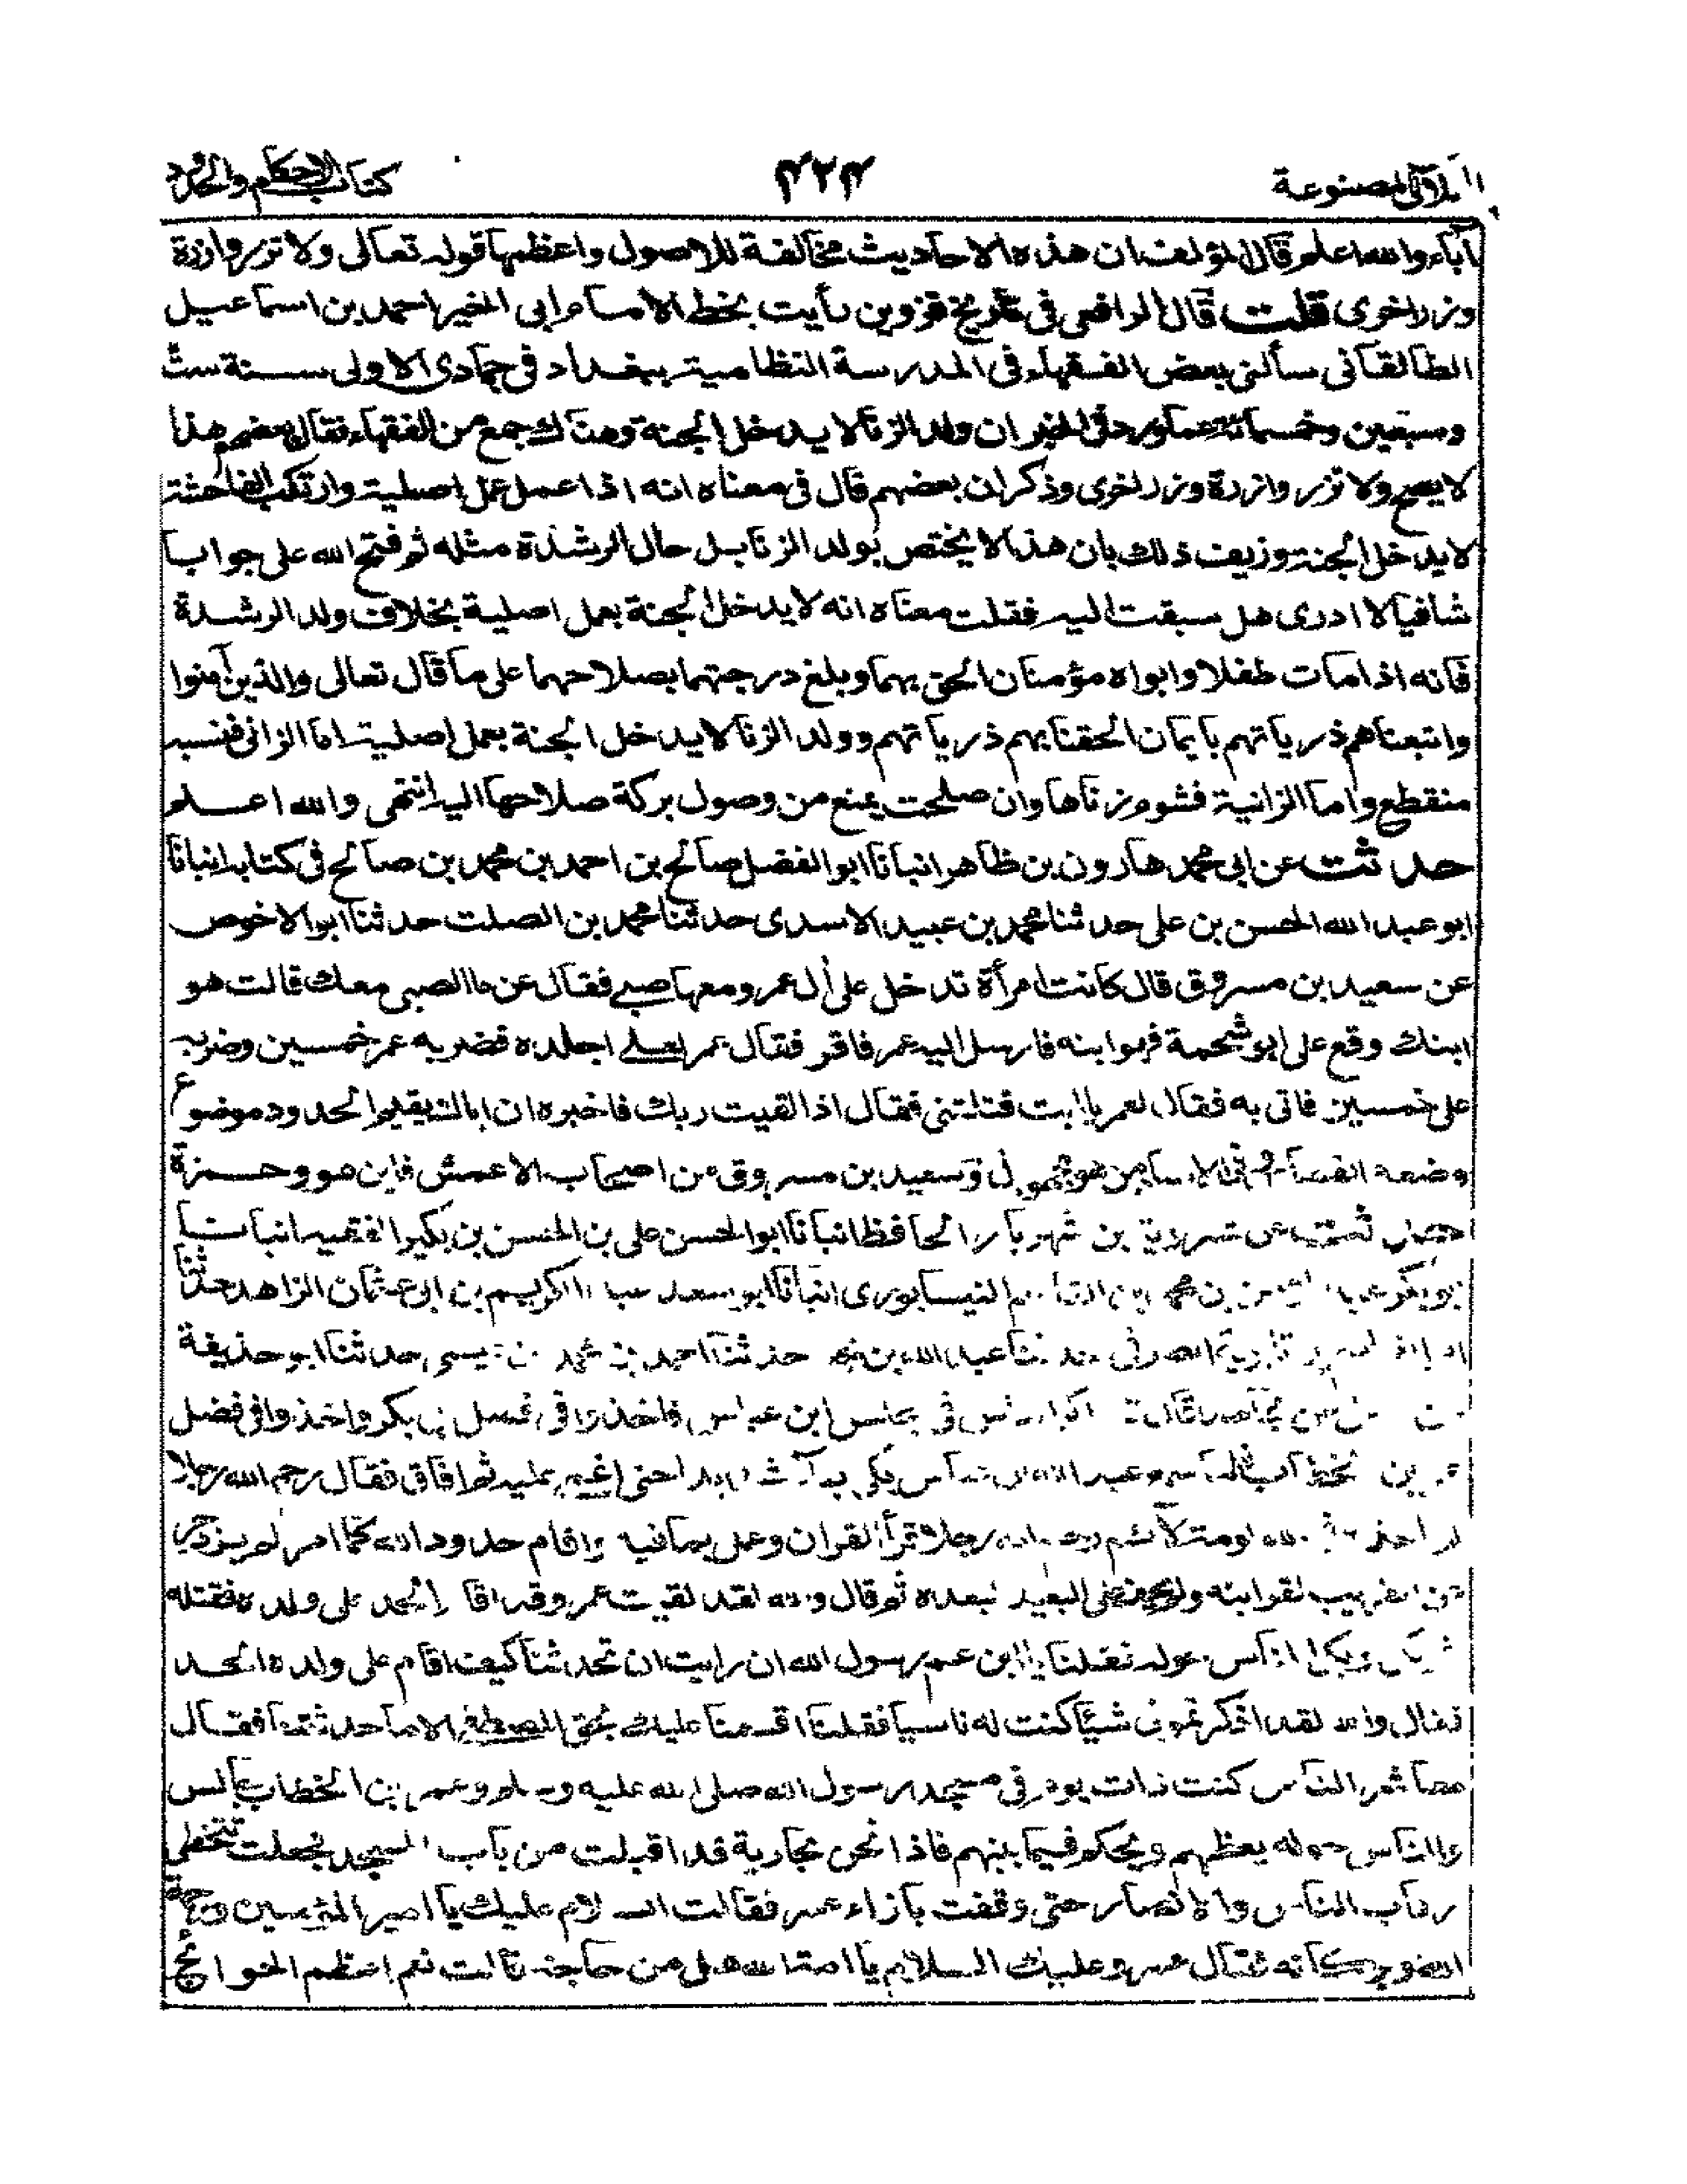 اللآلی المصنوعة ۴۲۴ کتاب الاحکام والحدود
آباء والله اعلم قال المؤلف ان هذه الاحادیث مخالفة للاصول واعظمها قوله تعالی ولا تزر وازرة
وزر اخری قلت قال الرافعی فی تاریخ قزوین رأیت بخط الامام ابی الخیر احمد بن اسماعیل
الطالقانی سألنی بعض الفقهاء فی المدرسة النظامیة ببغداد فی جمادی الاولی سنة ست
وسبعین وخمسمائة عما ورد فی الخبر ان ولد الزنا لا یدخل الجنة وهناك جمع من الفقهاء فقال بعضهم هذا
لا یصح ولا تزر وازرة وزر اخری وذکر ان بعضهم قال فی معناه انه اذا عمل عمل اصلیة وارتکب الفاحشة
لا یدخل الجنة وزیف ذلك بان هذا لا یختص بولد الزنا بل حال الرشدة مثله ثم فتح الله علی جوابا
شافیا لا ادری هل سبقت الیه فقلت معناه انه لا یدخل الجنة بعمل اصلیة بخلاف ولد الرشدة
فانه اذا مات طفلا وابواه مؤمنان الحق بهما وبلغ درجتهما بصلاحهما علی ما قال تعالی والذین آمنوا
واتبعناهم ذریاتهم بایمان الحقنا بهم ذریاتهم وولد الزنا لا یدخل الجنة بعمل اصلیة اما الزانی فنسبه
منقطع واما الزانیة فشوم زناها وان صلحت یمنع من وصول برکة صلاحها الیه انتهی والله اعلم
حدثت عن ابی محمد هارون بن ظاهر انبانا ابو الفضل صالح بن احمد بن محمد بن صالح فی کتابه انبانا
ابو عبد الله الحسن بن علی حدثنا محمد بن عبید الاسدی حدثنا محمد بن الصلت حدثنا ابو الاخوص
عن سعید بن مسروق قال کانت امرأة تدخل علی أل عمر ومعها صبی فقال عن ما الصبی معك قالت هو
ابنك وقع علی ابو شحمة فهو ابنه فارسل الیه عمر فاقر فقال عمر لعلی اجلده فضربه عمر خمسین وضربه
علی خمسین فاتی به فقال لعمر یا ابت قتلتنی فقال اذا لقیت ربك فاخبره ان اباك یقیم الحدود موضوع
وضعه القصاص وفی الاسناد من هو مجهول وسعید بن مسروق من اصحاب الاعمش فاین هو وحمزة
حدثت عن شیرویه بن شهریار الحافظ انبانا ابو الحسن علی بن الحسن بن بکیر الفقیه انبانا
ابو بکر عبد الرحمن بن محمد بن القاسم النیسابوری انبانا ابو سعد عبد الکریم بن ابی عثمان الزاهد حدثنا
حدثنا عبد الله بن حدثنا احمد بن محمد بن عیسی حدثنا ابو حذیفة
عن مجاهد قال تذاکر الناس فی مجلس ابن عباس فاخذوا فی فضل ابی بکر واخذوا فی فضل
عمر بن الخطاب فلما سمع عبد الله بن عباس بکی بکاء شدیدا حتی اغمی علیه ثم افاق فقال رحم الله رجلا
لم تأخذه فی الله لومة لائم رحم الله رجلا قرأ القران وعمل بما فیه واقام حدود الله کما امر لم یزدجر
من القریب لقرابته ولم یحف علی البعید لبعده ثم قال والله لقد لقیت عمر وقد اقام الحد علی ولده فقتله
ثم بکی وبکی الناس حوله فقلنا یا ابن عم رسول الله ان رایت ان تحدثنا کیف اقام علی ولده الحد
فقال والله لقد اذکرتمونی شیئا کنت له ناسیا فقلنا اقسمنا علیك بحق المصطفی الا ما حدثتنا فقال
معاشر الناس کنت ذات یوم فی مسجد رسول الله صلی الله علیه وسلم وعمر بن الخطاب جالس
والناس حوله یعظهم ویحکم فیما بینهم فاذا نحن بجاریة قد اقبلت من باب المسجد فجعلت تتخطی
رقاب الناس والانصار حتی وقفت بازاء عمر فقالت السلام علیك یا امیر المؤمنین ورحمة
الله وبرکاته فقال عمر وعلیك السلام یا امة الله هل من حاجة قالت نعم اعظم الحوائج